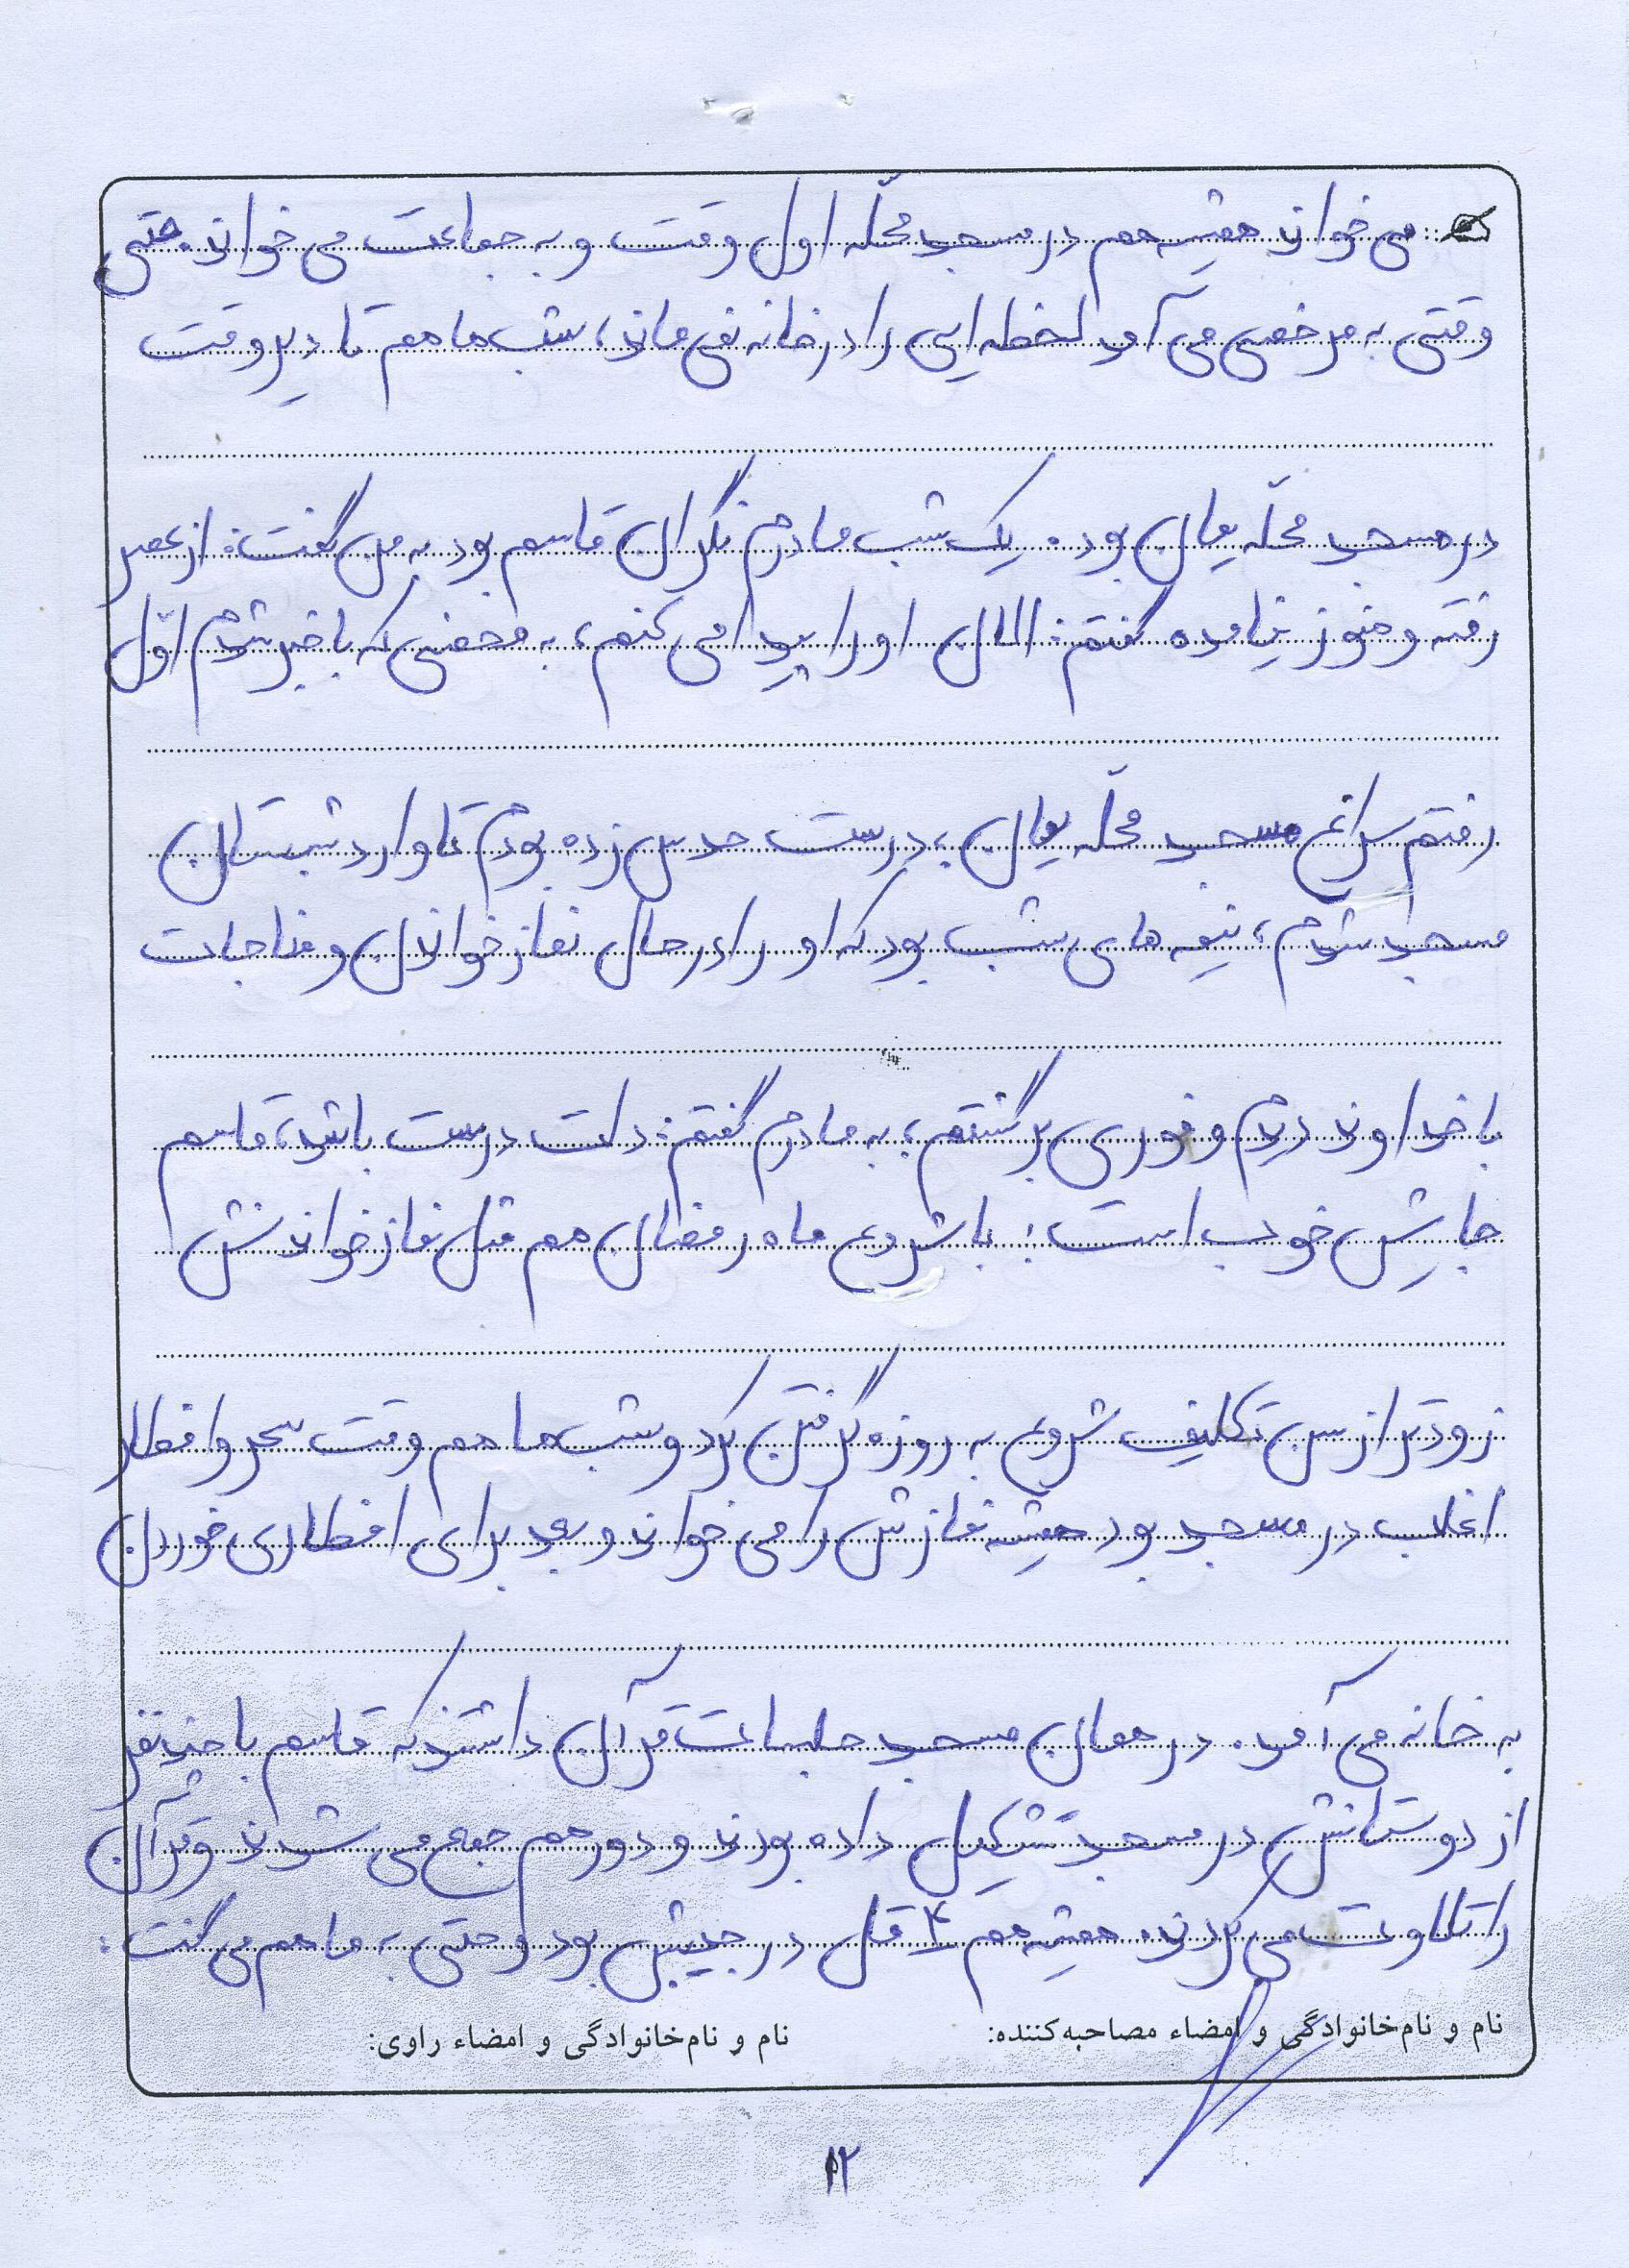 می خواند همیشه هم در مسجد محلّه اول وقت و به جماعت می خواند. حتی
وقتی به مرخصی می آمد لحظه ایی را در خانه نمی ماند، شب ها هم تا دیر وقت
در مسجد محلّه یمان بود. یک شب مادرم نگران قاسم بود به من گفت: از عصر
رفته و هنوز نیامده گفتم: الان او را پیدا می کنم، به محضی که با خبر شدم اوّل
رفتم سراغ مسجد محلّه یمان، درست حدس زده بودم تا وارد شبستان
مسجد شدم، نیمه های شب بود که او را در حال نماز خواندن و مناجات
با خداوند دیدم و فوری برگشتم، به مادرم گفتم: دلت درست باشد، قاسم
جایش خوب است! با شروع ماه رمضان هم مثل نماز خواندنش
زودتر از سن تکلیف شروع به روزه گرفتن کرد و شب ها هم وقت سحر و افطار
اغلب در مسجد بود همیشه نمازش را می خواند و بعد برای افطاری خوردن
به خانه می آمد. در همان مسجد جلسات قرآن داشتند که قاسم با چند نفر
از دوستانش در مسجد تشکیل داده بودند و دور هم جمع می شدند و قرآن
را تلاوت می کردند. همیشه هم ۴ قل در جیبش بود و حتی به ما هم می گفت:
نام و نام‌خانوادگی و امضاء مصاحبه‌کننده: نام و نام‌خانوادگی و امضاء راوی:
۱۲